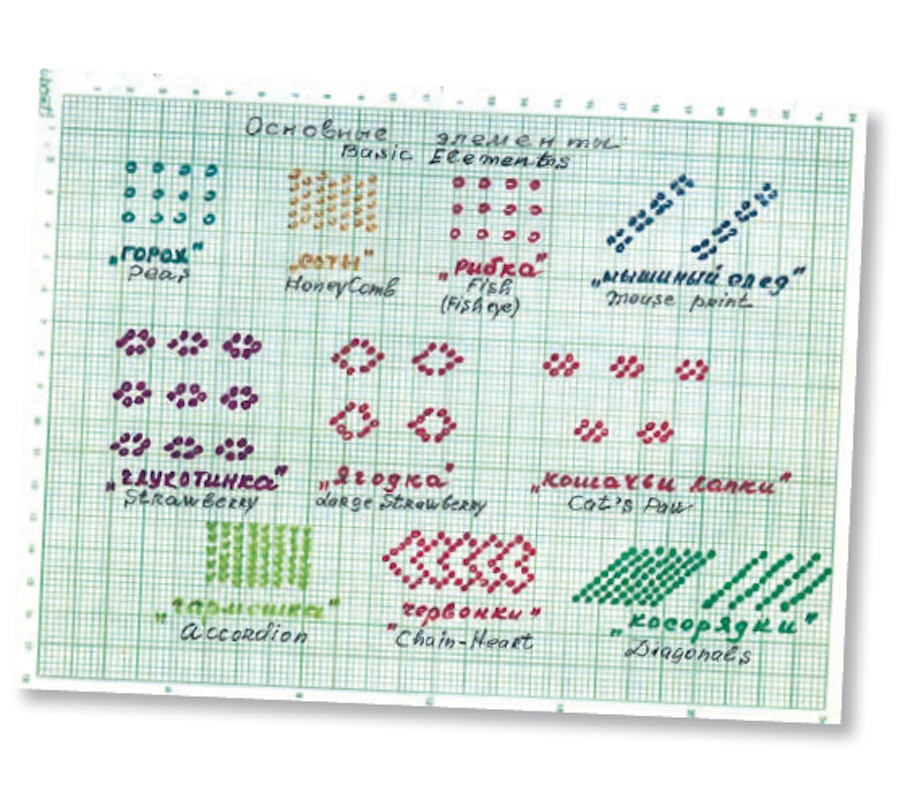 Основные элементы
Basic Elementos
„горох"
Pear
„соты"
HoneyComb
„рибка"
Fish
(Fish eye)
„мышиный след"
mouse print
„глухотинка"
Strawberry
„Ягодка"
Large Strawberry
„кошачьи лапки"
Cat's Paw
„гармошка"
Accordion
„червонки"
Chain-Heart
„косорядки"
Diagonals